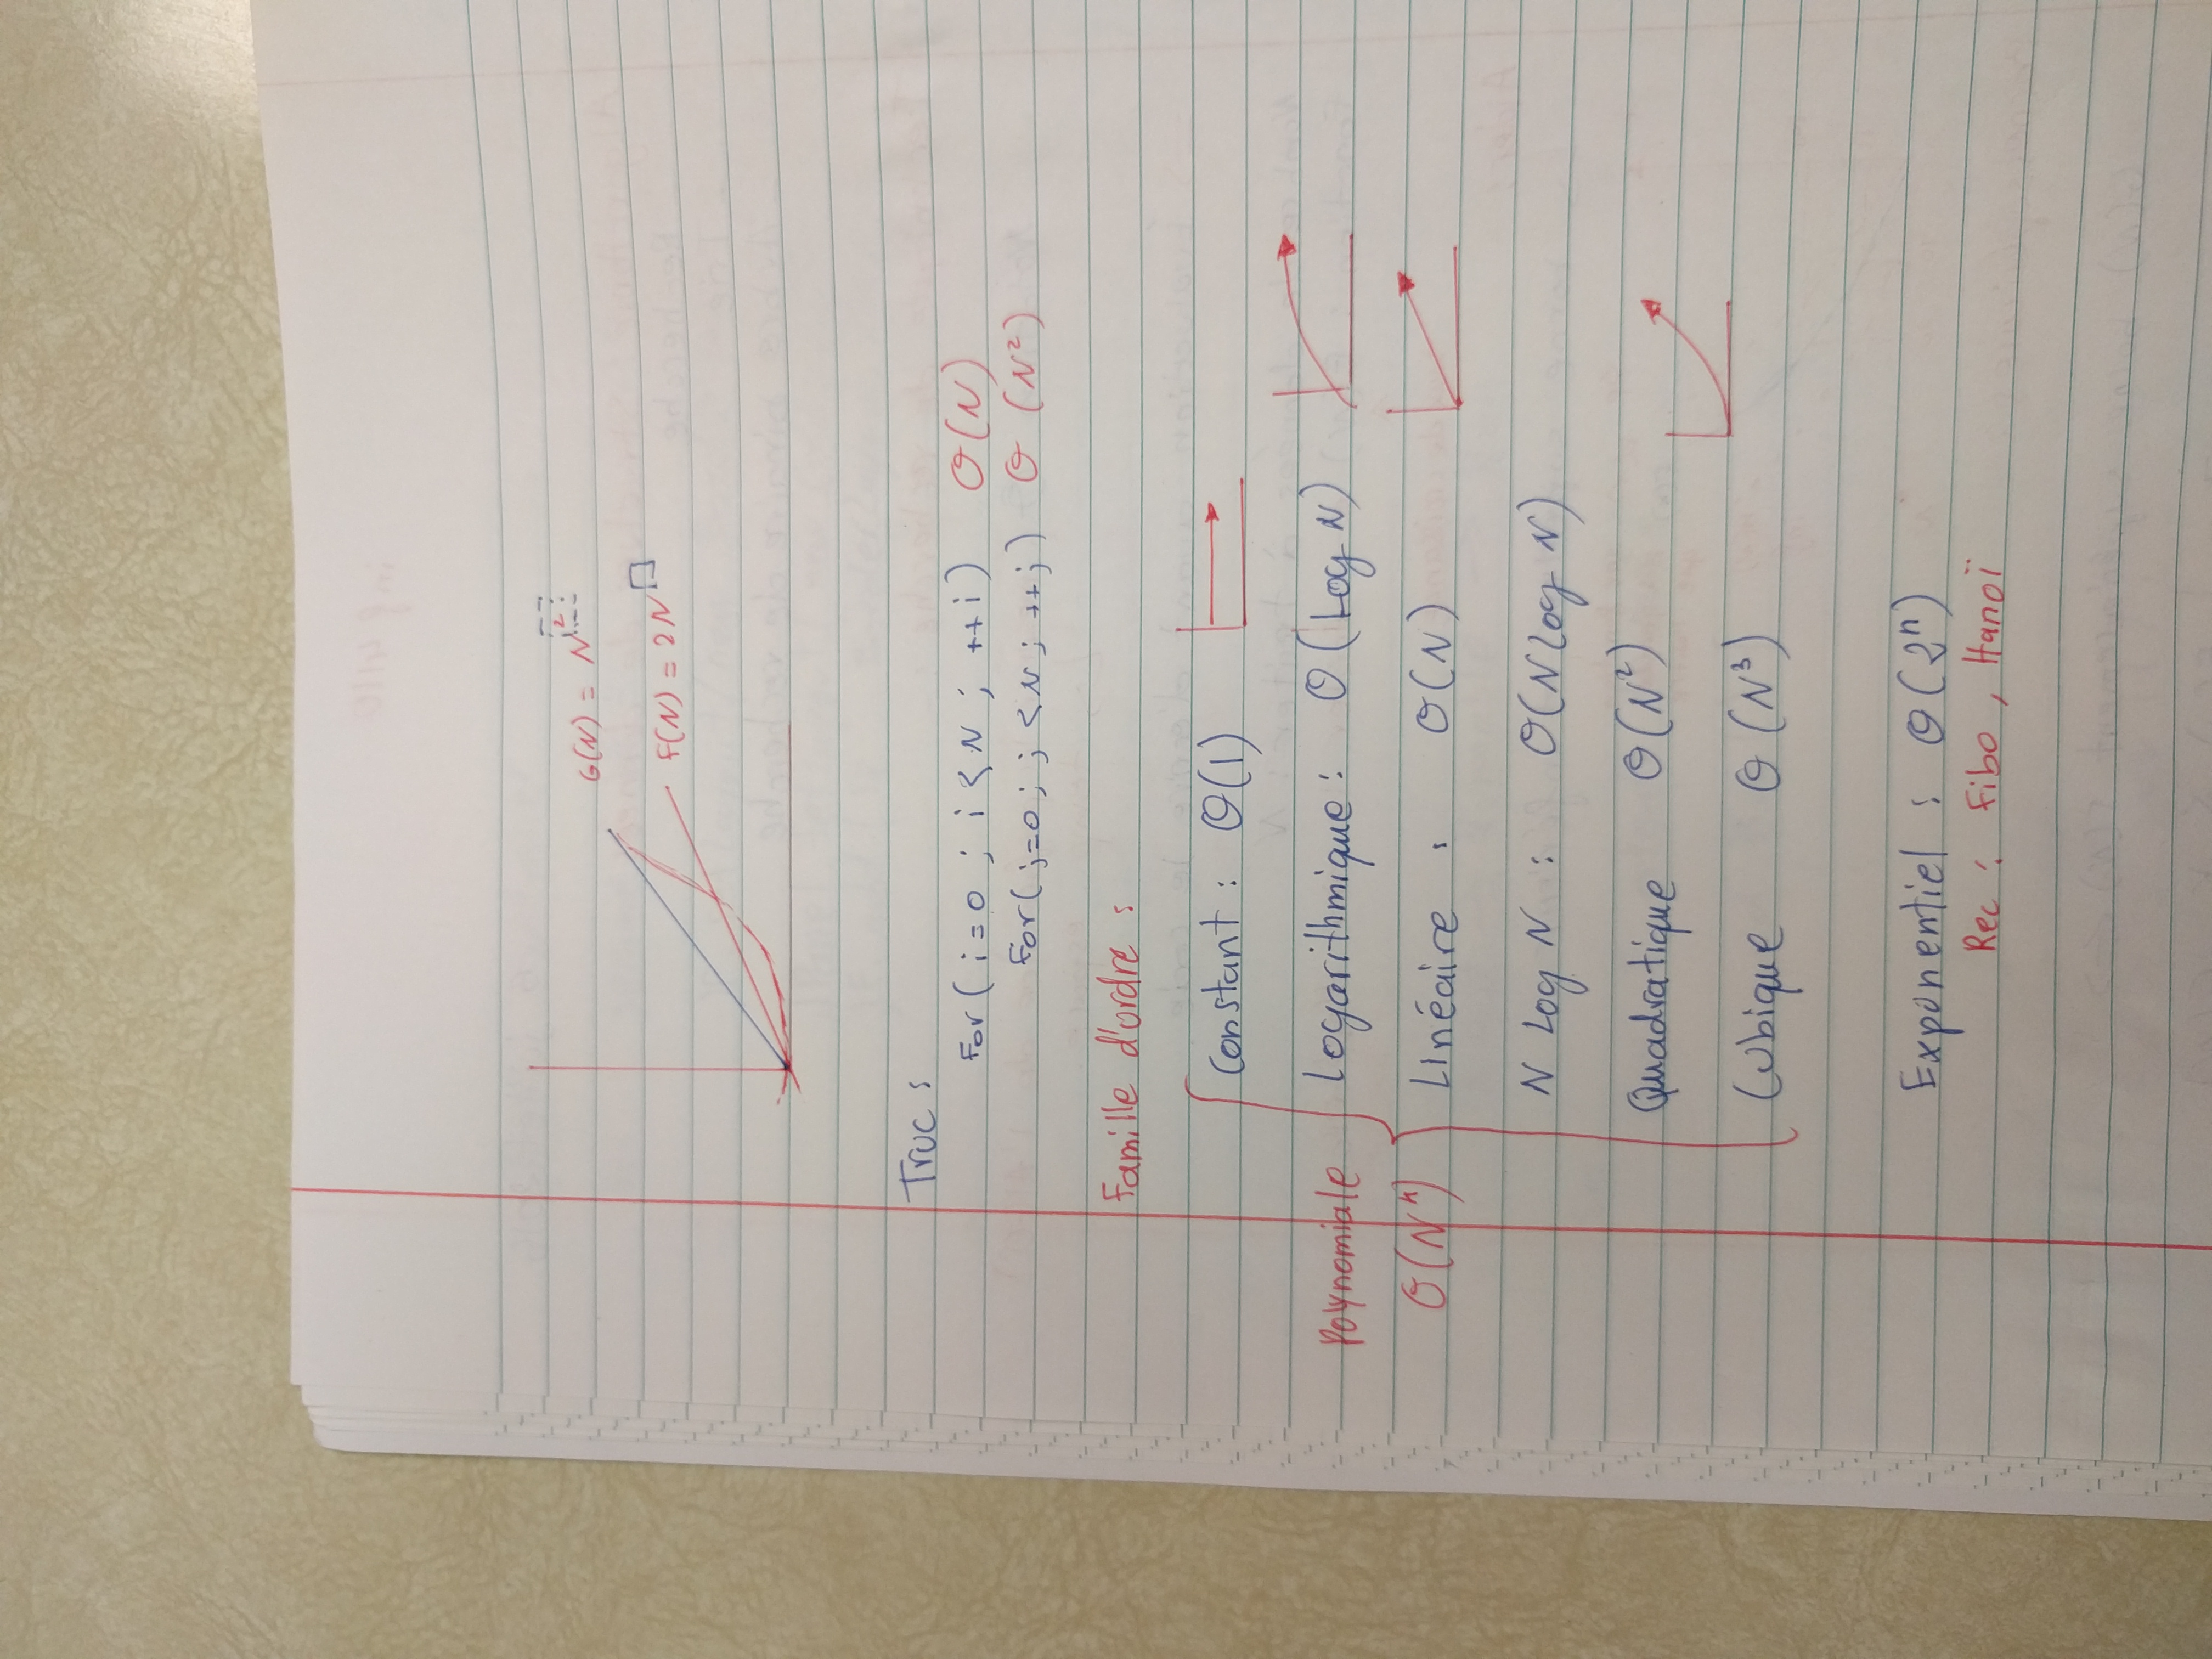 G(N) = N²
F(N) = 2N
Truc :
For ( i=0 ; i < N ; ++i ) O(N)
For ( j=0 ; j < N ; ++j ) O (N²)
Famille d'ordre :
Constant : O(1)
Polynomiale
Logarithmique : O (Log N)
O(Nⁿ)
Linéaire : O(N)
N Log N : O(N log N)
Quadratique O(N²)
Cubique O (N³)
Exponentiel : O (2ⁿ)
Rec : Fibo , Hanoï